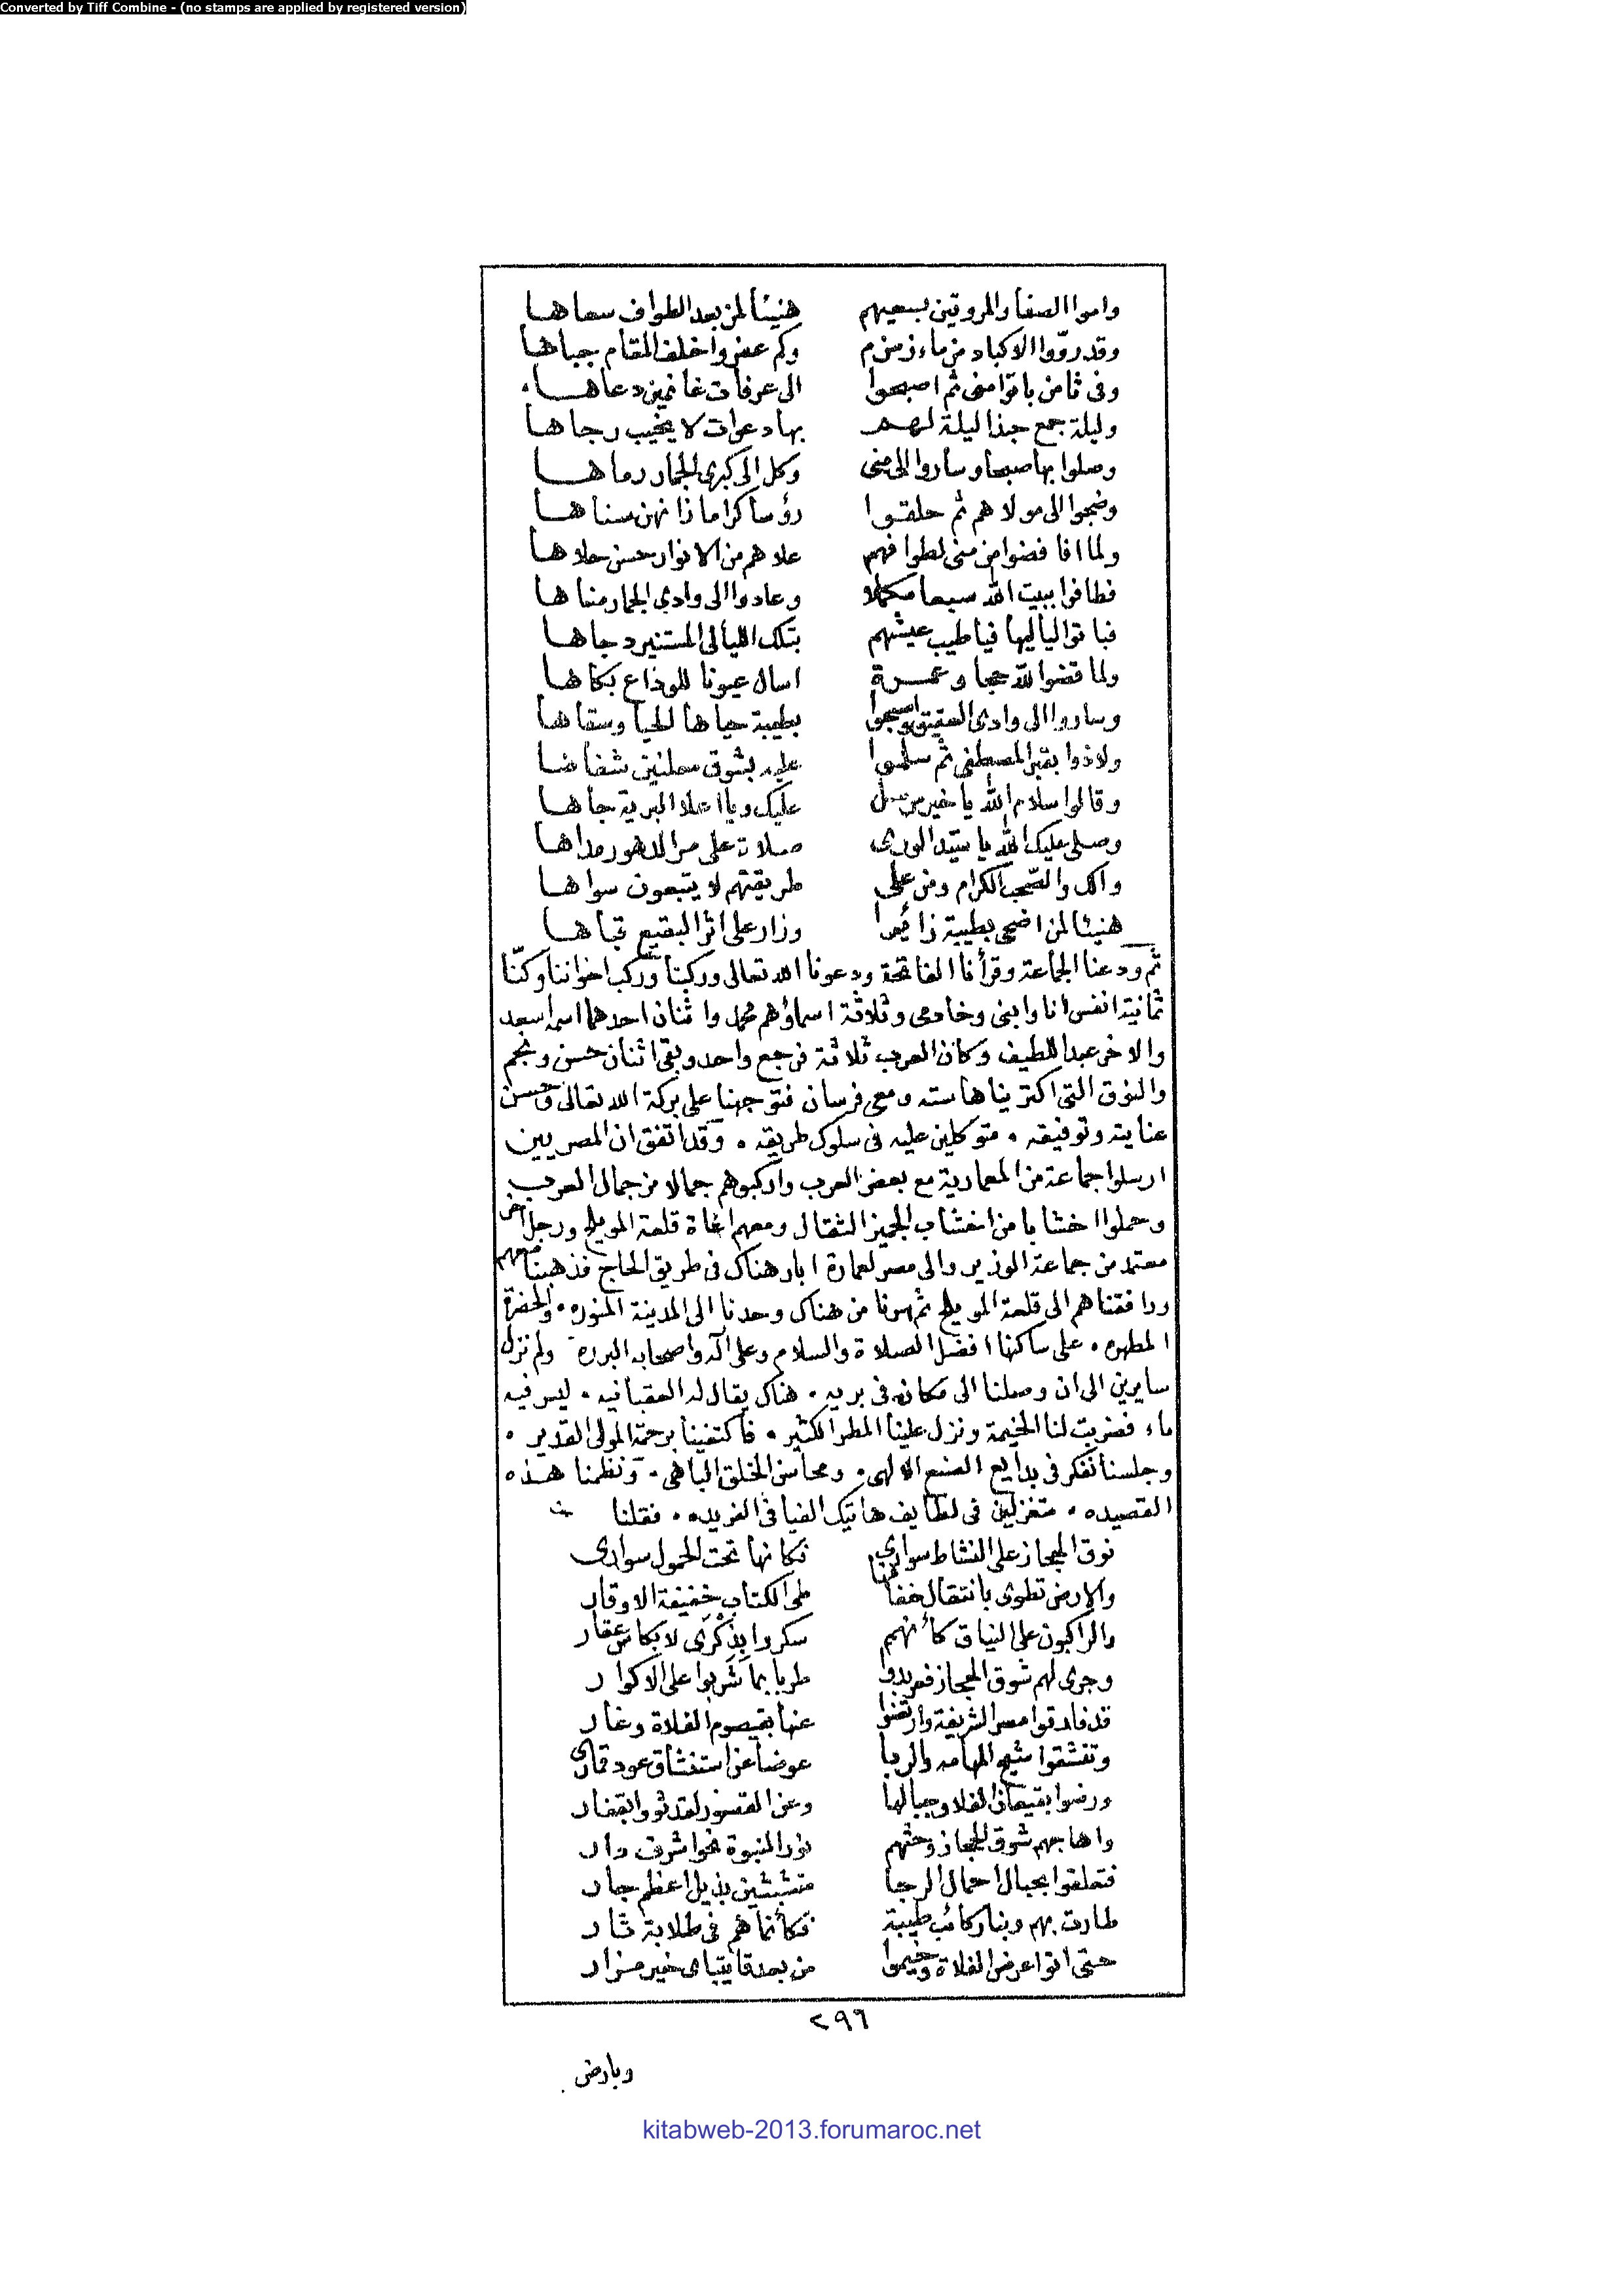 Converted by Tiff Combine - (no stamps are applied by registered version)
واموا الصفا والمروتين بسعيهم هنيئا لمن بعد الطواف سعاها
وقد روّوا الاكباد من ماء زمزم وكم عفروا خلف المقام جباها
وفى ثامن باتوا منى ثم اصبحوا الى عرفات غانمين دعاها
وليلة جمع حبذا ليلة لهم بها دعوات لا يخيب رجاها
وصلوا بها صبحا وساروا الى منى وكل الى كبرى الجمار رماها
وضجوا الى مولاهم ثم حلقوا رؤسا كراما زانهن سناها
ولما افاضوا من منى لطوافهم علاهم من الانوار حسن حلاها
فطافوا ببيت الله سبعا مكملا وعادوا الى وادى الجمار مناها
فباتوا لياليها فيا طيب عيشهم بتلك الليالى المستنير دجاها
ولما قضوا لله حجا وعمرة اسال عيونا للوداع بكاها
وساروا الى وادى العقيق واصبحوا بطيبة حياها الحيا وسقاها
ولاذوا بقبر المصطفى ثم سلموا عليه بشوق معلنين شفاها
وقالوا سلام الله يا خير مرسل عليك ويا اعلا البرية جاها
وصلى عليك الله يا سيّد الورى صلاة على مر الدهور مداها
والك والصّحب الكرام ومن على طريقتهم لا يتبعون سواها
هنيئا لمن اضحى بطيبة زائرا وزار على اثر البقيع قباها
ثم ودعنا الجماعة وقرأنا الفاتحة ودعونا الله تعالى وركبنا وركب اخواننا وكنّا
ثمانية انفس انا وابنى وخادمى وثلاثة اسماؤهم محمد واثنان احدهما اسمه اسعد
والاخر عبد اللطيف وكان العرب ثلاثة فرجع واحد وبقى اثنان حسن ونجم
والنوق التى اكتريناها سته ومعى فرسان فتوجهنا على بركة الله تعالى وحسن
عنايته وتوفيقه . متوكلين عليه فى سلوك طريقه . وقد اتفق ان المصريين
ارسلوا جماعة من المعمارية مع بعض العرب واركبوهم جمالا من جمال العرب
وحملوا اخشابا من اخشاب الجميز الثقال ومعهم اغاة قلعة المويلح ورجل اخر
معتمد من جماعة الوزير والى مصر لعمارة ابار هناك فى طريق الحاج فذهبنا معهم
ورافقناهم الى قلعة المويلح ثم سرنا من هناك وحدنا الى المدينة المنوره . والحضرة
المطهره . على ساكنها افضل الصلاة والسلام وعلى آله واصحابه البرره ولم نزل
سايرين الى ان وصلنا الى مكان فى بريه . هناك يقال له العقبانيه . ليس فيه
ماء فضربت لنا الخيمة ونزل علينا المطر الكثير . فاكتفينا برحمة المولى القدير .
وجلسنا نفكر فى بدايع الصنع الالهى . ومحاسن الخلق الباهى . ونظمنا هذه
القصيده . متغزلين فى لطايف هاتيك الفيافى الفريده . فقلنا
نوق الحجاز على النشاط سوارى فكانها تحت الحمول سوارى
والارض تطوى بانتقال خفافها طى الكتاب خفيفة الاوقار
والراكبون على النياق كأنهم سكروا بذكرى لا بكاس عقار
وجرى لهم شوق الحجاز فعربدوا طربا بما شربوا على الاكوار
قد فارقوا مصر الشريفة وارتضوا عنها بقيصوم الفلاة وغار
وتنشقوا شيح المهامه والربا عوضا عن استنشاق عود قمارى
ورضوا بقيعان الفلا وجبالها وعن القصور لقد ثووا بقفار
واهاجهم شوق الحجاز وحثهم نور النبوة نحو اشرف دار
فتعلقوا بحبال احمال الرجا متشبثين بذيل اعظم جار
طارت بهم وبنا ركائب طيبة فكأنما هم فى طلابة ثار
حتى اتوا عرض الفلاة وخيموا من بعد قايتباى خير مزار
٢٩٦
وبارض
kitabweb-2013.forumaroc.net